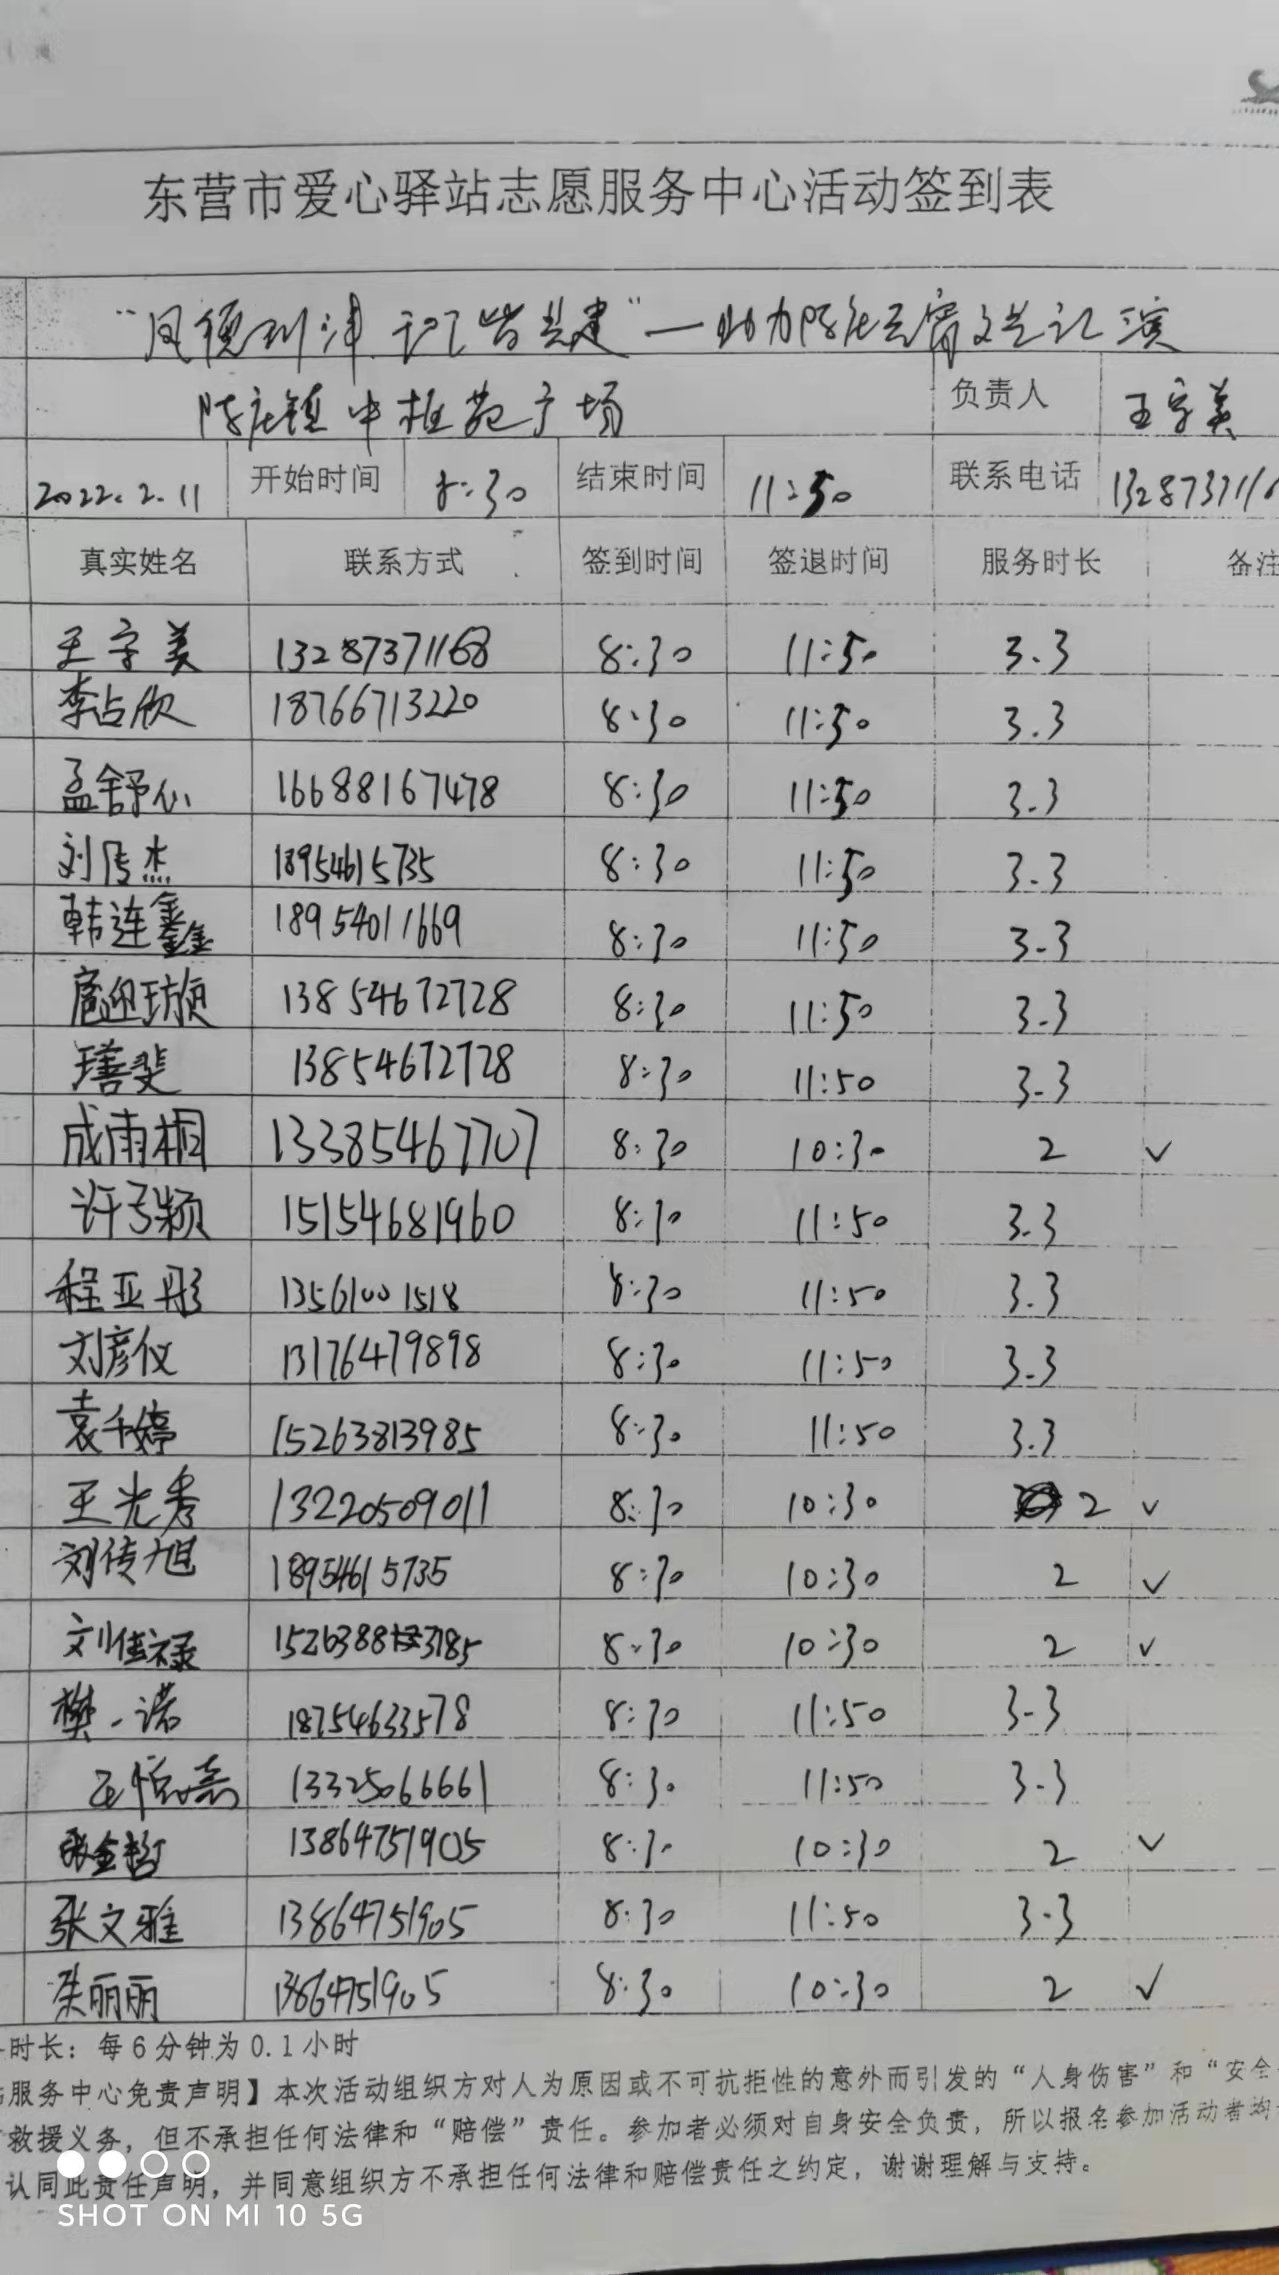 东营市爱心驿站志愿服务中心活动签到表
"凤德利津 共建"一助力陈庄元宵文艺汇演
陈庄镇中 苑广场 负责人 王字美
2022.2.11 开始时间 8:30 结束时间 11:50 联系电话 132873711
真实姓名 联系方式 签到时间 签退时间 服务时长 备注
王字美 13287371168 8:30 11:50 3.3
李占欣 18766713220 8:30 11:50 3.3
孟舒心 16688167478 8:30 11:50 3.3
刘传杰 18954615735 8:30 11:50 3.3
韩连鑫 18954011669 8:30 11:50 3.3
扈迎 13854672728 8:30 11:50 3.3
13854672728 8:30 11:50 3.3
成雨桐 13385467707 8:30 10:30 2 ✓
许 颖 15154681960 8:30 11:50 3.3
程亚彤 13561001518 8:30 11:50 3.3
刘彦仪 13176479898 8:30 11:50 3.3
袁千婷 15263813985 8:30 11:50 3.3
王光秀 13220509011 8:30 10:30 2 ✓
刘传旭 18954615735 8:30 10:30 2 ✓
刘佳禄 8:30 10:30 2 ✓
樊一诺 18754633578 8:30 11:50 3.3
王怡嘉 13325066661 8:30 11:50 3.3
13864751905 8:30 10:30 2 ✓
张文雅 13864751905 8:30 11:50 3.3
丽丽 13864751905 8:30 10:30 2 ✓
时长：每6分钟为0.1小时
服务中心免责声明】本次活动组织方对人为原因或不可抗拒性的意外而引发的“人身伤害”和“安全
救援义务，但不承担任何法律和“赔偿”责任。参加者必须对自身安全负责，所以报名参加活动者均
认同此责任声明，并同意组织方不承担任何法律和赔偿责任之约定，谢谢理解与支持。
SHOT ON MI 10 5G